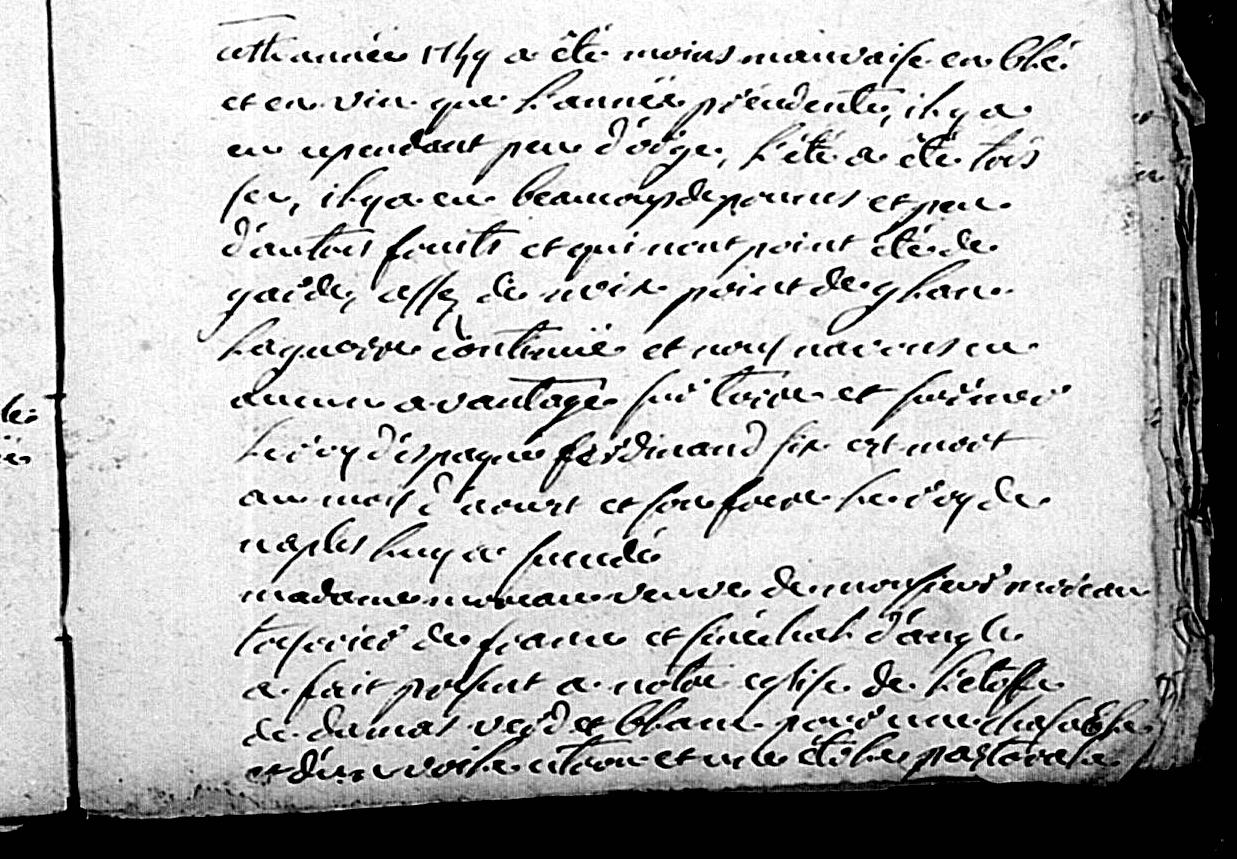 cette année 1759 a été moins mauvaise en blé
et en vin que l'année précédente, il y a
eu cependant peu d'orge, l'été a été tres
sec, il y a eu beaucoup de pommes et peu
d'autres fruits et qui nont point été de
garde, assez de noix point de glan
la guerre continuë et nous n'avons eu
aucun avantage sur terre et sur mer
le roy d'espagne ferdinand six est mort
au mois d'aoust et son frere le roy de
naples luy a succedé
madame moreau veuve de monsieur moreau
tresorier de france et sénéchal d'angle
a fait present a notre eglise de l'etoffe
de damas verd et blanc pour une chasuble
et d'un voile etion et une étole pastorale